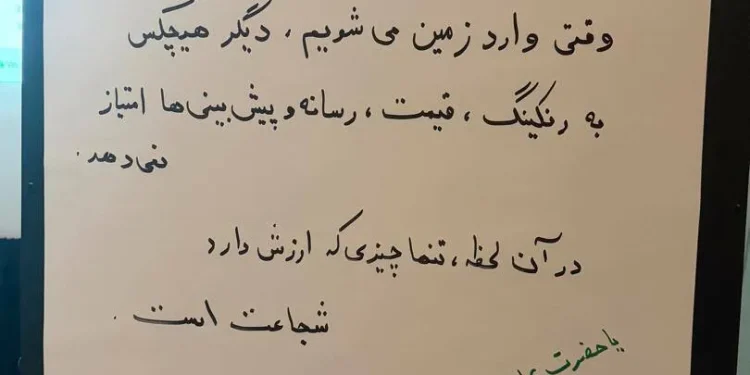 وقتی وارد زمین می شویم، دیگر هیچکس
به رنکینگ، قیمت، رسانه و پیش بینی ها امتیاز
نمی دهد.
در آن لحظه، تنها چیزی که ارزش دارد
شجاعت است.
یا حضرت